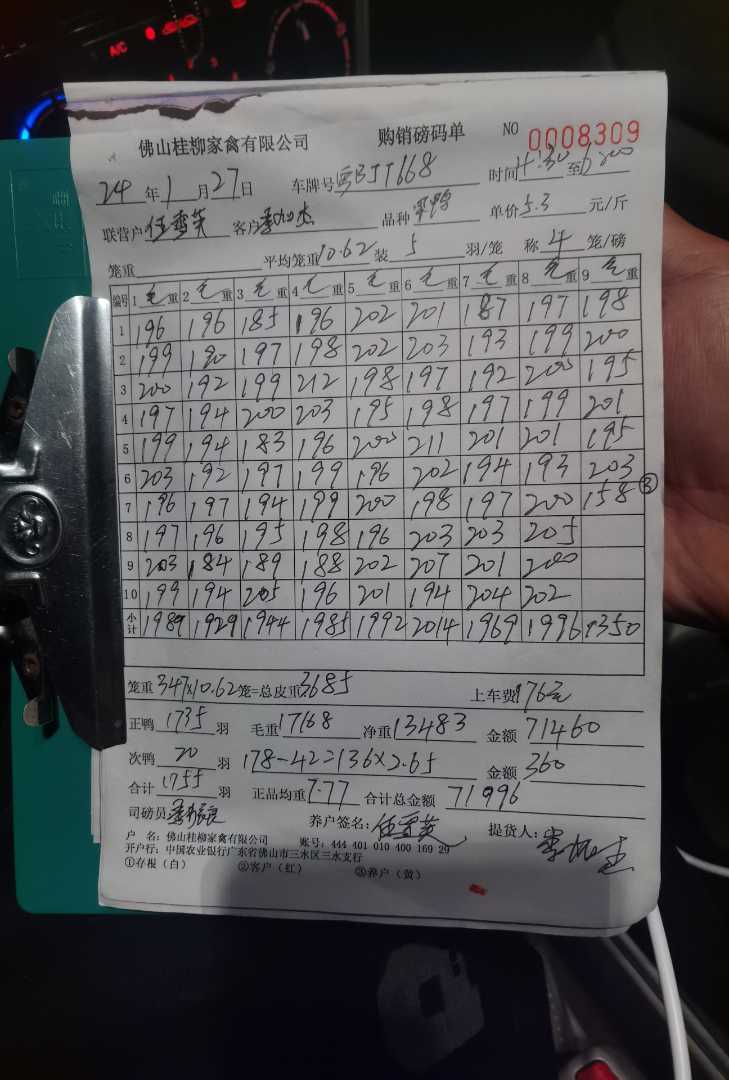 A/C
佛山桂柳家禽有限公司 购销磅码单 NO 0008309
24年1月27日 车牌号粤BJT668 时间4:30至6:00
联营户任雪英 客户 品种 单价5.3元/斤
笼重 平均笼重10.62装5羽/笼 称4笼/磅
编号 1毛重 2毛重 3毛重 4毛重 5毛重 6毛重 7毛重 8毛重 9毛重
1 196 196 185 196 202 201 187 197 198
2 199 190 197 198 202 203 193 199 200
3 200 192 199 212 198 197 192 200 195
4 197 194 200 203 195 198 197 199 201
5 199 194 183 196 200 211 201 201 195
6 203 192 197 199 196 202 194 193 203
7 196 197 194 199 200 198 197 200 158 ③
8 197 196 195 198 196 203 203 205
9 203 184 189 188 202 207 201 200
10 199 194 205 196 201 194 204 202
小计 1989 1929 1944 1985 1992 2014 1969 1996 1350
笼重347×10.62笼=总皮重3685 上车费176元
正鸭1735羽 毛重17168 净重13483 金额71460
次鸭20羽 178-42=136×2.65 金额360
合计1755羽 正品均重7.77 合计总金额71996
司磅员 养户签名:任雪英 提货人:
户 名:佛山桂柳家禽有限公司 账号:444 401 010 400 169 29
开户行:中国农业银行广东省佛山市三水区三水支行
①存根(白) ②客户(红) ③养户(黄)